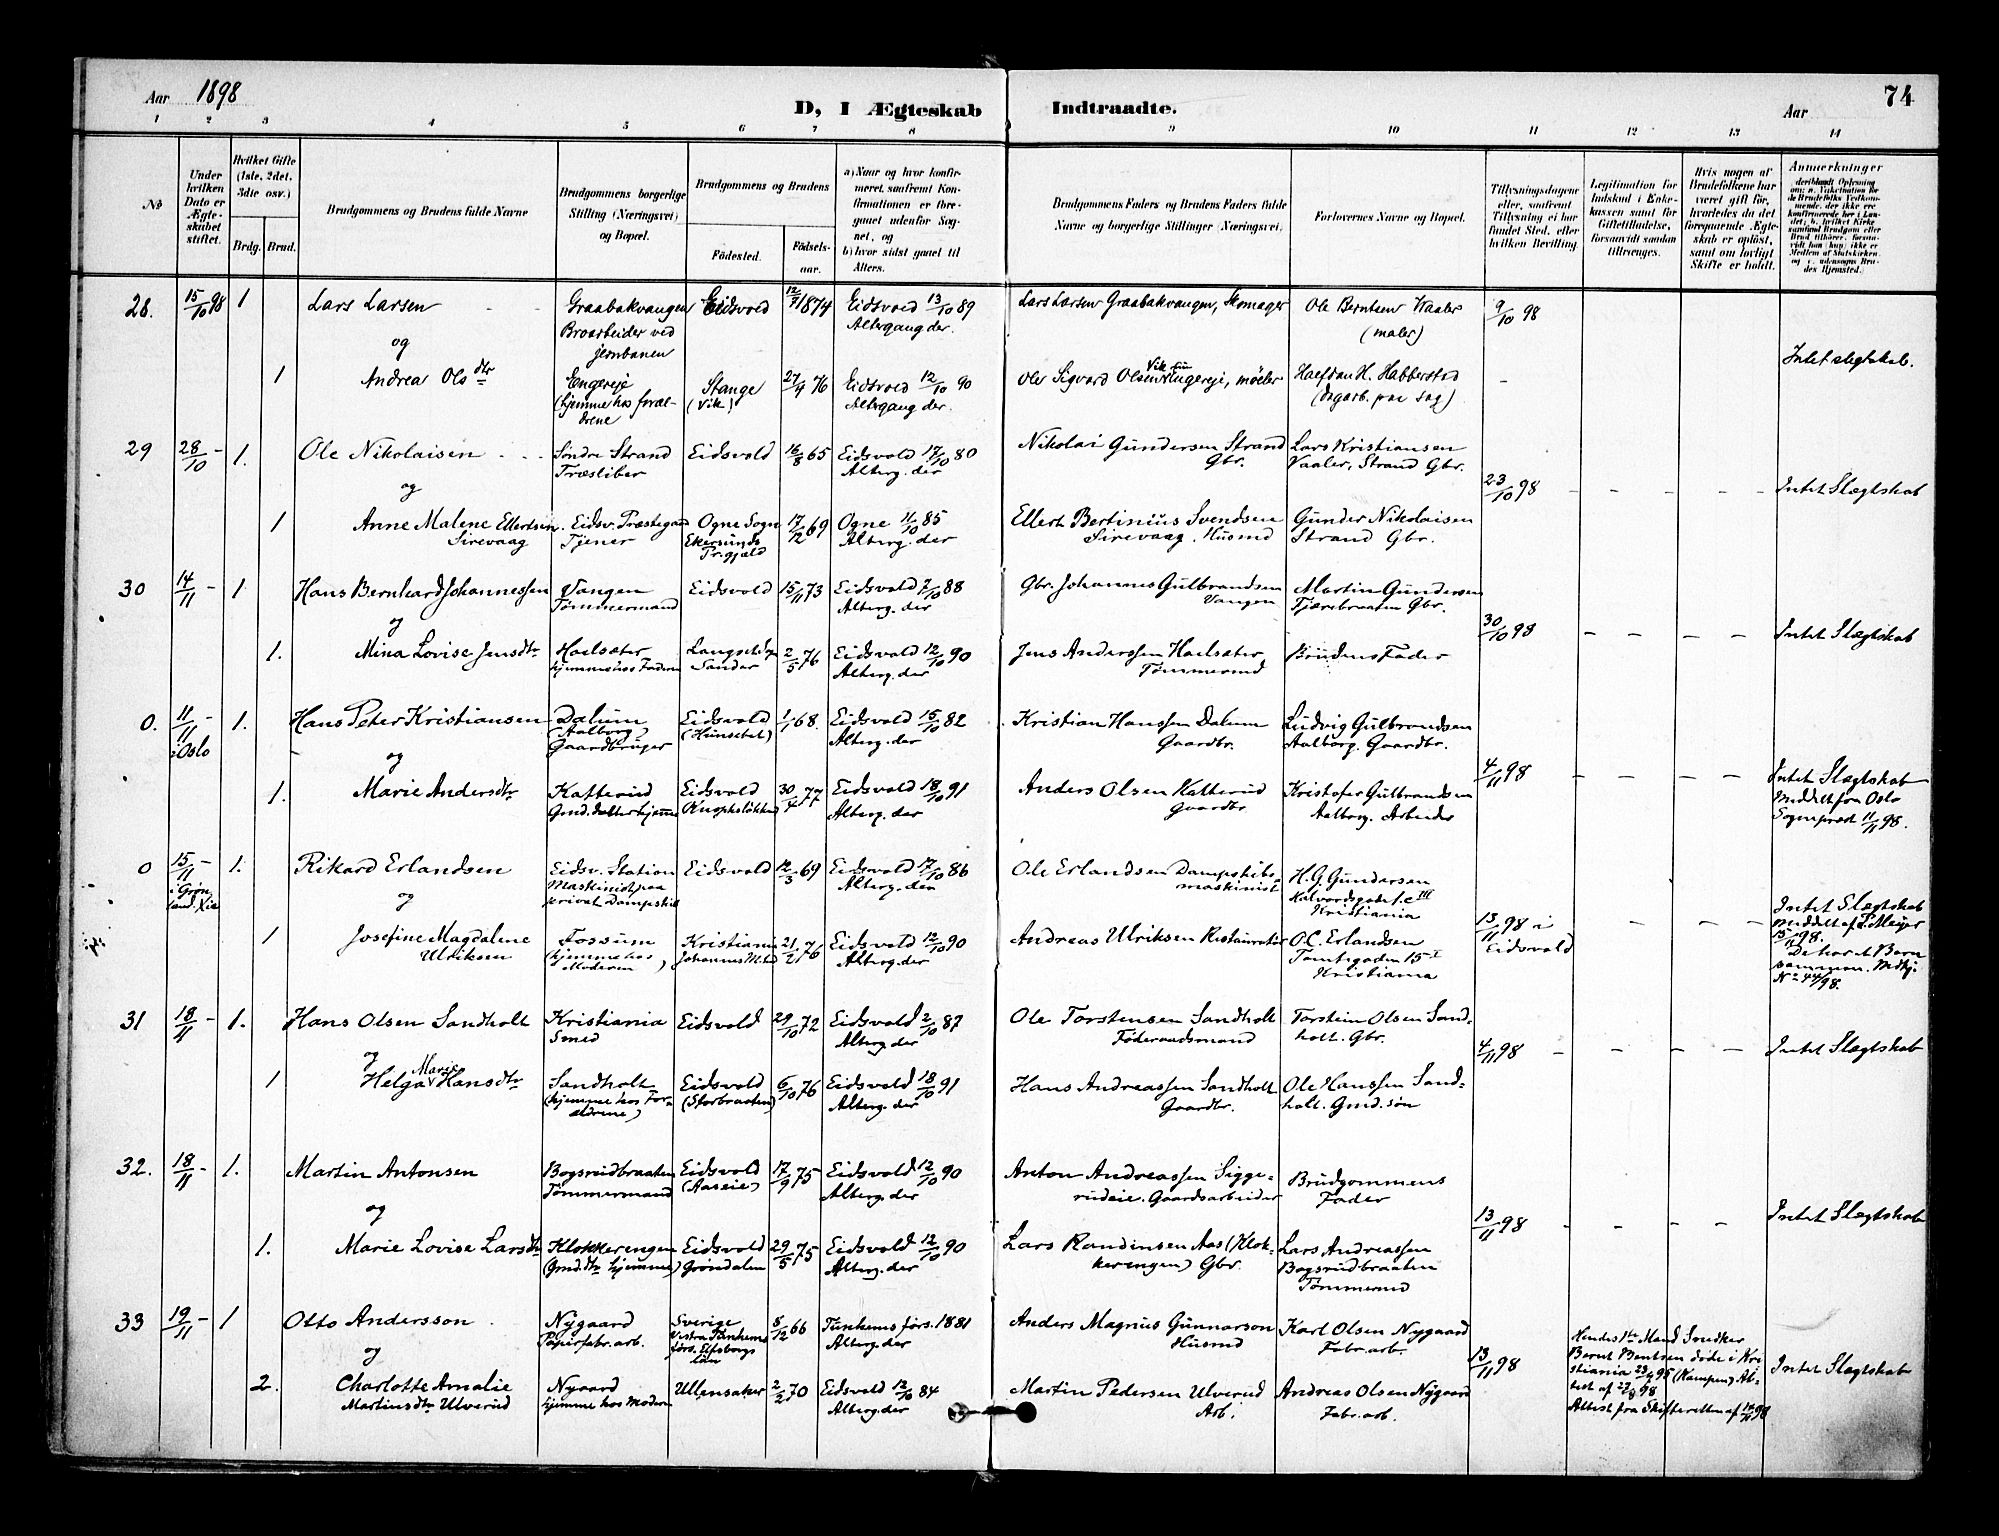 Aar 1898
D, I Ægteskab Indtraadte.
Aar
74
1 2 3 4 5 6 7 8 9 10 11 12 13 14
No
Under hvilken Dato er Ægteskabet stiftet.
Hvilket Gifte (1ste, 2det, 3die osv.)
Brdg. Brud.
Brudgommens og Brudens fulde Navne
Brudgommens borgerlige Stilling (Næringsvei) og Bopæl.
Brudgommens og Brudens
Fødested. Fødselsaar.
a) Naar og hvor konfirmeret, saafremt Konfirmationen er foregaaet udenfor Sognet, og
b) hvor sidst gaaet til Alters.
Brudgommens Faders og Brudens Faders fulde Navne og borgerlige Stillinger (Næringsvei)
Forlovernes Navne og Bopæl.
Tillysningsdagene eller, saafremt Tillysning ei har fundet Sted, efter hvilken Bevilling.
Legitimation for Indskud i Enkekassen samt for Giftetilladelse, forsaavidt saadan tiltrænges.
Hvis nogen af Brudefolkene har været gift før, hvorledes da det foregaaende Ægteskab er opløst, samt om lovligt Skifte er holdt.
Anmærkninger
28. 15/10 98 1 Lars Larsen Graabakvangen Broarbeider ved jernbanen Eidsvold 12/9 1874 Eidsvold 13/10 89 Altergang der. Lars Larsen Graabakvangen, Skomager Ole Berntsen Vaaler (maler) 9/10 98
og
1 Andrea Olsdtr Engereje (hjemme hos forældrene Stange (Vik) 27/9 76 Eidsvold 12/10 90 Altergang der. Ole Sigvard Olsen Engereje, møller Halfdan H. Habberstad (dagarb. paa sag) Intet slegtskab.
29 28/10 - 1. Ole Nikolaisen Søndre Strand Træsliber Eidsvold 16/8 65 Eidsvold 17/10 80 Alterg. der Nikolai Gundersen Strand Gbr. Lars Kristiansen Vaaler, Strand Gbr.
og
23/10 98 - - - - Intet Slægtskab
1 Anne Malene Ellertsen Sirevaag Eidsv. Præstegaard Tjener Ogne Sogn Ekersunds Pr.gjæld 17/12 69 Ogne 11/10 85 Alterg. der Ellert Bertinius Svendsen Sirevaag. Husmd Gunder Nikolaisen Strand Gbr.
30 14/11 - 1. Hans Bernhard Johannessen Vangen Tømmermand Eidsvold 15/11 73 Eidsvold 7/10 88 Alterg. der Gbr. Johannes Gulbrandsen Vangen Martin Gundersen Tjærebraaten Gbr.
og
30/10 98 - - - - Intet Slægtskab
1. Mina Lovise Jensdtr Hælsæter hjemme hos Faderen Langset Sander 2/5 76 Eidsvold 12/10 90 Alterg. der Jens Anderssen Hælsæter Tømmermd Brudens Fader
0. 11/11 - i Oslo 1. Hans Peter Kristiansen Dalum (Aalborg) Gaardbruger Eidsvold (Hunsebet) 1/1 68. Eidsvold 15/10 82 Alterg. der Kristian Hanssen Dalum Gaardbr. Ludvig Gulbrandsen Aalborg. Gaardbr.
og
4/11 98 - - - - Intet Slægtskab Meddelt fra Oslo Sognepræst 11/11 98.
1. Marie Andersdtr Katterud Gmd.datter hjemme Eidsvold Knophsløkken 30/4 77 Eidsvold 18/10 91 Alterg. der Anders Olsen Katterud Gaardbr Kristofer Gulbrandsen Aalborg. Arbeider
0 15/11 - i Grønland. Xia 1. Rikard Erlandsen Eidsv. Station Maskinist paa privat Dampskib Eidsvold 12/3 69 Eidsvold 17/10 86 Alterg. der Ole Erlandsen Dampskibsmaskinist H. G. Gundersen Halvordsgade 1.c III Kristiania
og
13/11 98 i Eidsvold - - - Intet Slægtskab meddelt af S. Meyer 15/11 98. De har et Barn sammen. No 44/98.
1 Josefine Magdalene Ulriksen Fossum (hjemme hos Moderen) Kristiania Johannes M.hed 21/2 76 Eidsvold 12/10 90 Alterg. der Andreas Ulriksen Restauratør O.C. Erlandsen Tomtegaden 15 I Kristiania
31 18/11 - 1. Hans Olsen Sandholt Kristiania Smed Eidsvold 29/10 72 Eidsvold 2/10 87 Alterg. der Ole Torstensen Sandholt Føderaadsmand Torstein Olsen Sandholt. Gbr.
og
4/11 98 - - - - Intet Slægtskab
1 Helga Marie Hansdtr Sandholt (hjemme hos Forældrene) Eidsvold (Storbraaten) 6/10 76 Eidsvold 18/10 91 Alterg. der Hans Andreassen Sandholt Gaardbr. Ole Hanssen Sandholt. Gmd.søn
32. 18/11 - 1. Martin Antonsen Bogsrudbraaten Tømmermand Eidsvold (Aaseie) 17/9 75 Eidsvold 12/10 90 Alterg. der Anton Andreassen Siggerudeie. Gaardsarbeider Brudgommens Fader
og
13/11 98 - - - - Intet Slægtskab
1. Marie Lovise Larsdtr Klokkerengen (Gmd.dtr hjemme) Eidsvold Grøndalen 29/5 75 Eidsvold 12/10 90 Alterg. der Lars Randinsen Aas (Klokkerengen) Gbr. Lars Andreassen Bogsrudbraaten Tømmermd
33 19/11 - 1 Otto Andersson Nygaard Papirfabr.arb. Sverige Vestra Tunhems førs. Elfsborgs län 8/12 66 Tunhems førs. 1881 Alterg. der Anders Magnus Gunnarson Husmd Karl Olsen Nygaard Fabr.arb.
og
13/11 98 Hendes 1ste Mand Snedker Bernt Bentsen døde i Kristiania 23/4 95 (Kampen) Attest af 27/8 98 Attest fra Skifteretten af 14/11 98 Intet Slægtskab
2. Charlotte Amalie Martinsdtr Ulverud Nygaard hjemme hos Moderen Ullensaker 2/2 70 Eidsvold 12/10 84 Alterg. der Martin Pedersen Ulverud Arb. Andreas Olsen Nygaard Fabr.arb.